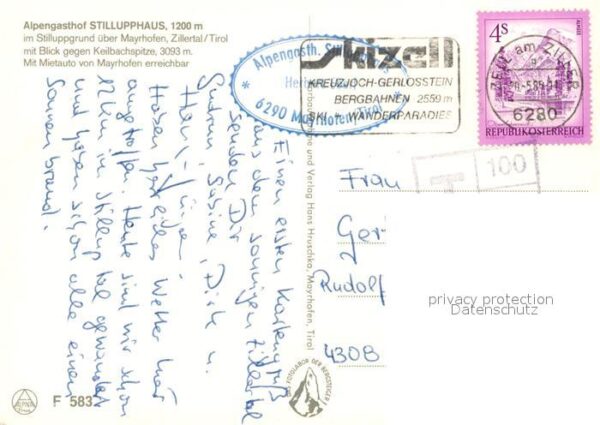 Alpengasthof STILLUPPHAUS, 1200 m
im Stilluppgrund über Mayrhofen, Zillertal/Tirol
mit Blick gegen Keilbachspitze, 3093 m.
Mit Mietauto von Mayrhofen erreichbar
Alpengasth. Stillupp
6290 Mayrhofen Tirol
Skizell
KREUZJOCH-GERLOSSTEIN
BERGBAHNEN 2559 m
SKI + WANDERPARADIES
ZELL am ZILLER
6280
4S
REPUBLIK ÖSTERREICH
T 100
Einen ersten Kartengruß
aus dem sonnigen Zillertal
senden Dir
Gudrun, Sabine, Dirk u.
Hans-
Haben herrliches Wetter hier
angetroffen. Heute sind wir schon
12 km im Stilluptal gewandert
und haben schon alle einen
Sonnenbrand.
und Verlag Hans Hruschka, Mayrhofen, Tirol
DAS FOTOLABOR DER BERGSTEIGER
Frau
Ger
Rudolf
4308
privacy protection
Datenschutz
ALPINA
F 583